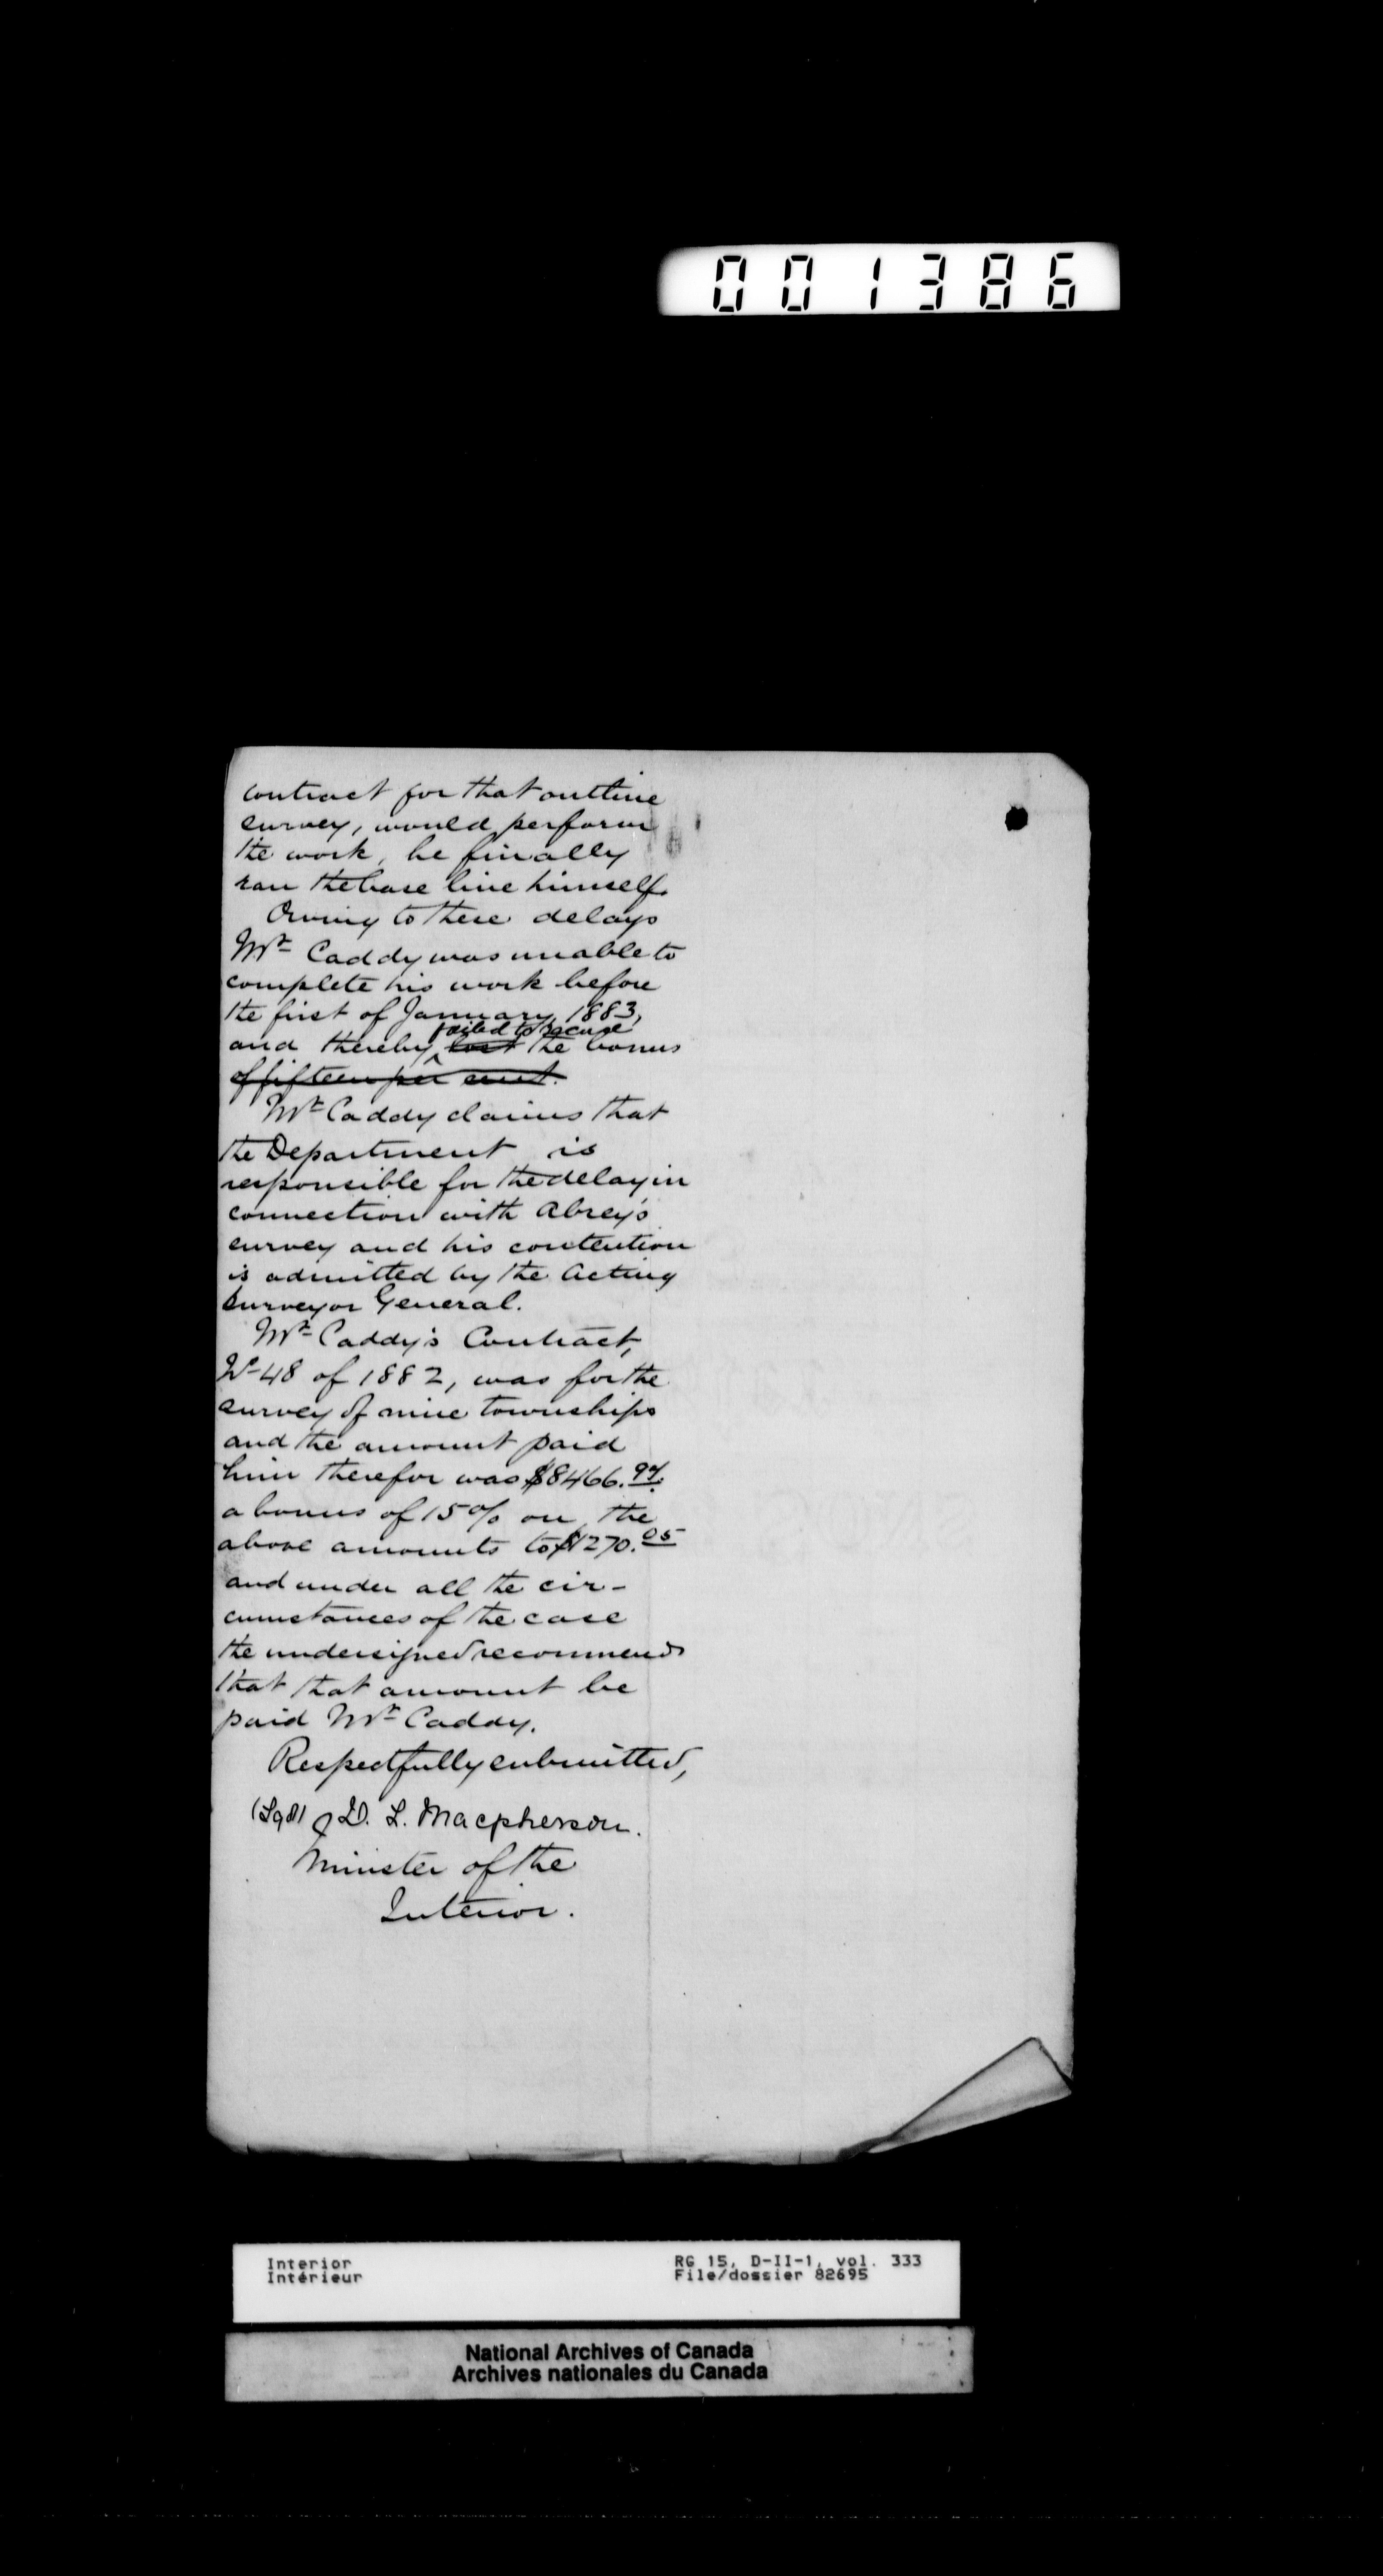 001386
contract for that outline
survey, would perform
the work, he finally
ran the base line himself.
Owing to these delays
Mr Caddy was unable to
complete his work before
the first of January, 1883,
failed to secure
and thereby lost the bonus
of fifteen per cent.
Mr Caddy claims that
the Department is
responsible for the delay in
connection with Abrey's
survey and his contention
is admitted by the Acting
Surveyor General.
Mr Caddy's Contract,
No 48 of 1882, was for the
survey of nine townships
and the amount paid
him therefor was $8466.97.
a bonus of 15% on the
above amounts to $1270.05
and under all the cir-
cumstances of the case
the undersigned recommends
that that amount be
paid Mr Caddy.
Respectfully submitted,
(Sgd) D. L. Macpherson.
Minister of the
Interior.
Interior RG 15, D-II-1, vol. 333
Intérieur File/dossier 82695
National Archives of Canada
Archives nationales du Canada